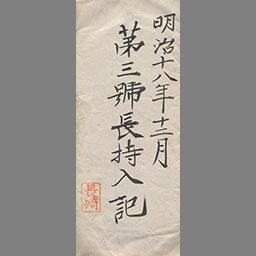 明治十八年十二月
第三號長持入記
長持